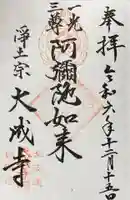 奉拝
令和六年十二月十五日
一光
三尊
阿彌陀如来
浄土宗
大成寺